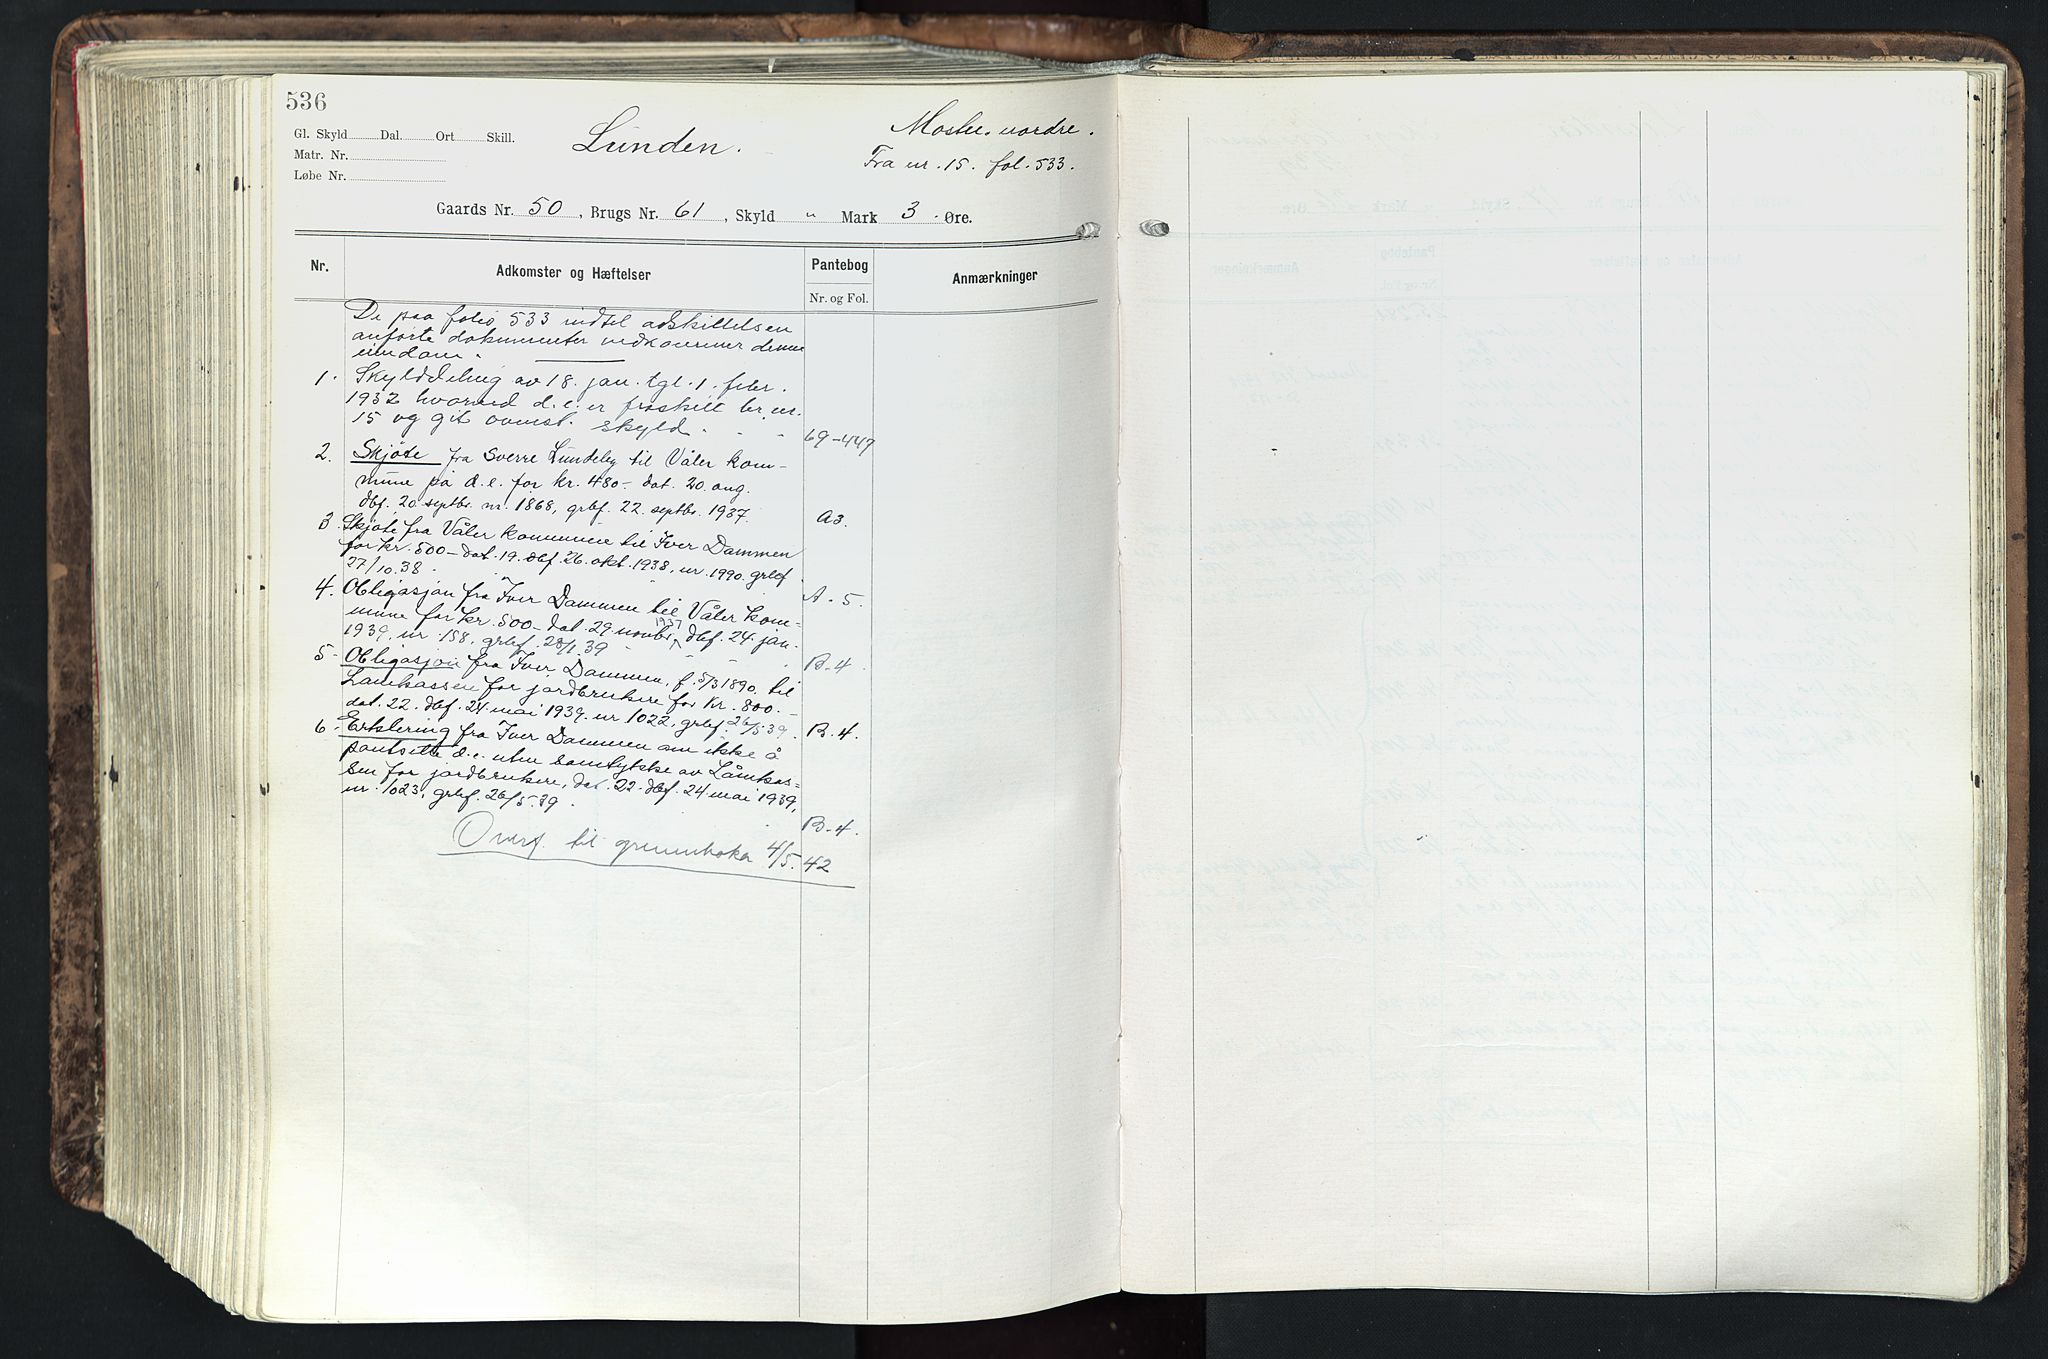 536
Gl. Skyld Dal. Ort Skill.
Matr. Nr.
Løbe Nr.
Lunden.
nordre.
Fra nr. 15. fol. 533.
Gaards Nr. 50, Brugs Nr. 61, Skyld " Mark 3 Øre.
Nr. Adkomster og Hæftelser Pantebog Anmærkninger
Nr. og Fol.
De paa folio 533 indtil adskillelsen
anførte dokumenter vedkommer denne
eiendom.
1. Skylddeling av 18. jan. tgl. 1. febr.
1932 hvorved d.e. er fraskilt br. nr.
15 og git ovenst. skyld. - - 69-449
2. Skjøte fra Sverre Lundeby til Våler kom-
mune på d.e. for kr. 480- dat. 20. aug.
dbf. 20. septbr. nr. 1868, grbf. 22. septbr. 1937. A3.
3. Skjøte fra Våler kommune til Iver Dammen
for kr. 500- dat. 19. dbf. 26. okt. 1938, nr. 1990. grbf.
27/10.38. A-5.
4. Obligasjon fra Iver Dammen til Våler kom-
mune for kr. 500- dat. 29. novbr. 1937, dbf. 24. jan.
1939, nr. 158, grbf. 28/1.39 - - - B-4.
5. Obligasjon fra Iver Dammen, f. 5/3 1890. til
Lånekassen for jordbrukere for kr. 800.-
dat. 22. dbf. 24. mai 1939. nr 1022, grbf. 26/5.39. B-4.
6. Erklering fra Iver Dammen om ikke å
pantsette d.e. uten samtykke av Lånekas-
sen for jordbrukere, dat. 22. dbf. 24. mai 1939,
nr. 1023, grbf. 26/5.39. B-4.
Overf. til grunnboka 4/5.42